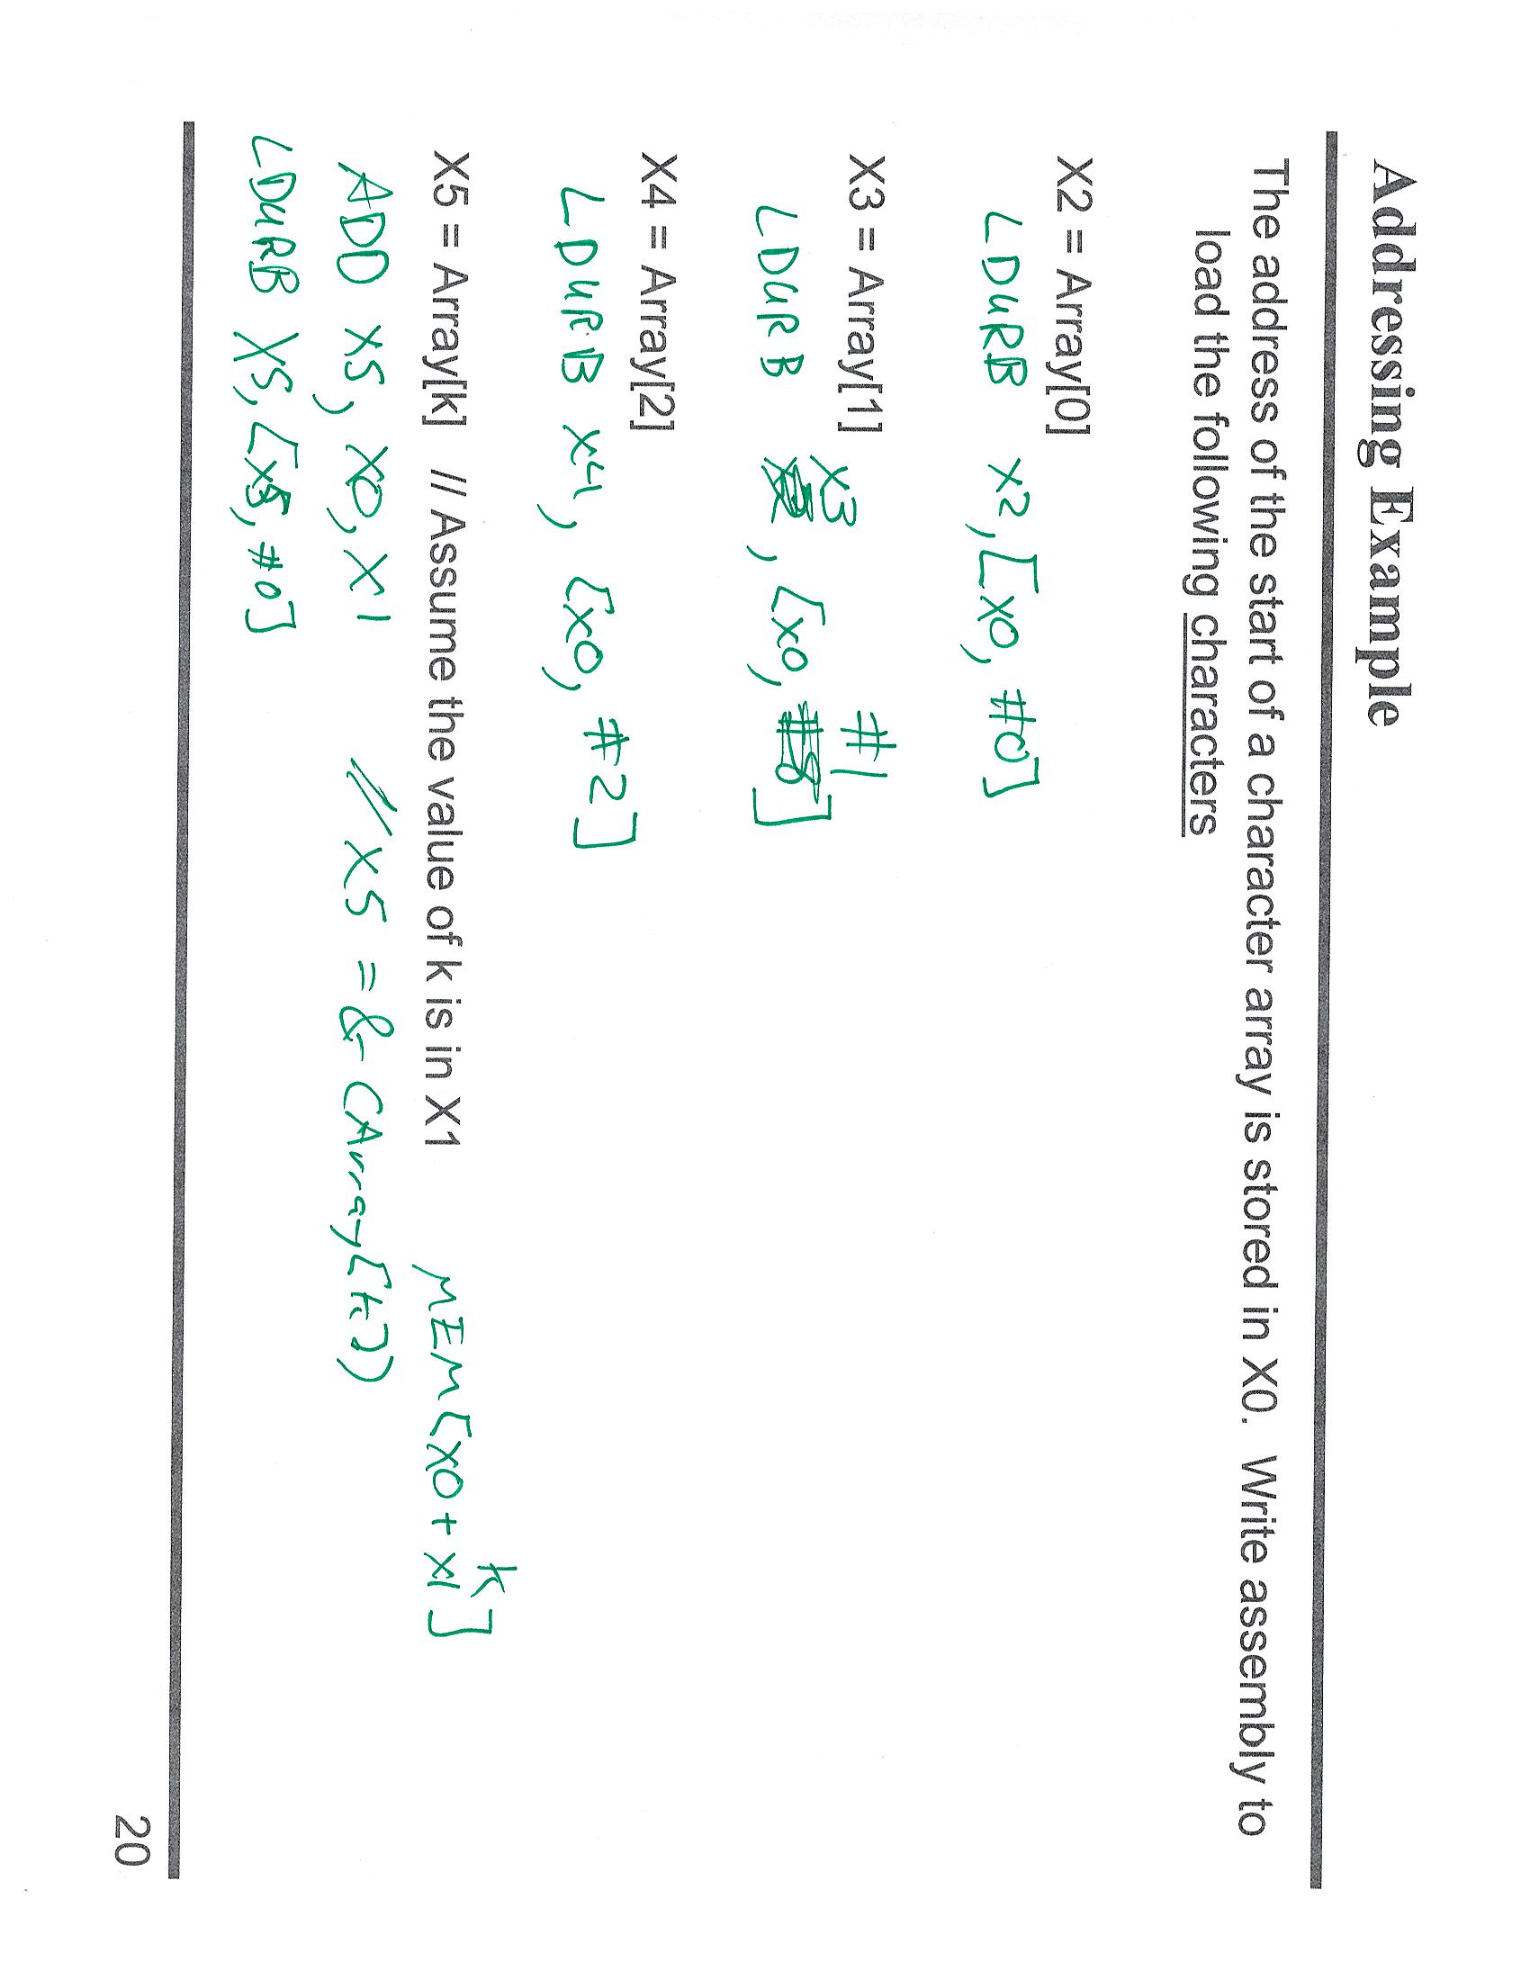 Addressing Example
The address of the start of a character array is stored in X0. Write assembly to
load the following characters
X2 = Array[0]
LDURB X2, [X0, #0]
X3 = Array[1]
LDURB X3, [X0, #1]
X4 = Array[2]
LDURB X4, [X0, #2]
X5 = Array[k] // Assume the value of k is in X1
MEM[X0 + X1]
k
ADD X5, X0, X1 // X5 = & CArray[k])
LDURB X5, [X5, #0]
20